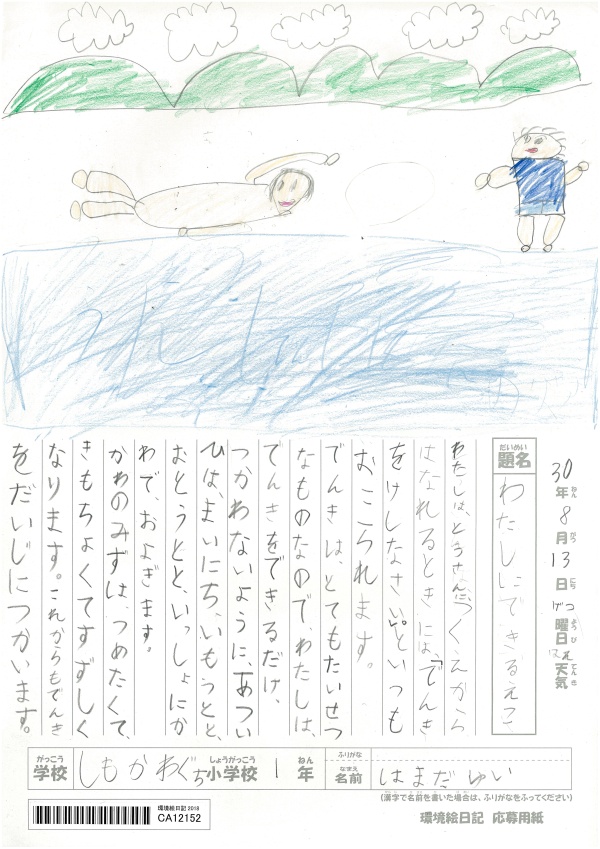 30年8月13日げつ曜日はれ天気
ねん がつ にち ようび てんき
だいめい
題名
わたしにできるえこ
わたしは、とうさんに「つくえから
はなれるときには、「でんき
をけしなさい。」といつも
おこられます。
でんきは、とてもたいせつ
なものなので、わたしは、
でんきをできるだけ、
つかわないように、あつい
ひは、まいにち、いもうとと、
おとうとと、いっしょにか
わで、およぎます。
かわのみずは、つめたくて、
きもちよくてすずしく
なります。これからもでんき
をだいじにつかいます。
がっこう しょうがっこう ねん ふりがな
学校 しもかわぐち小学校 1年
なまえ
名前 はまだ ゆい
(漢字で名前を書いた場合は、ふりがなをふってください)
環境絵日記 2018
CA12152
環境絵日記 応募用紙